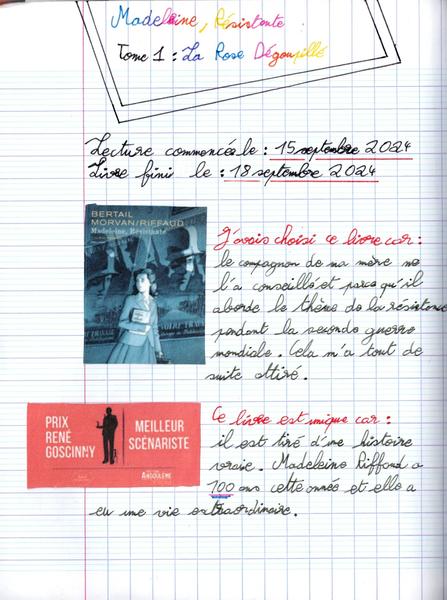 Madeleine, Résistante
Tome 1 : La Rose Dégoupillé
Lecture commencée le : 15 septembre 2024
Livre fini le : 18 septembre 2024
BERTAIL
MORVAN/RIFFAUD
Madeleine, Résistante
J'avais choisi ce livre car :
le compagnon de ma mère me
l'a conseillé et parce qu'il
aborde le thème de la résistance
pendant la seconde guerre
mondiale. Cela m'a tout de
suite attiré.
PRIX
RENÉ
GOSCINNY
MEILLEUR
SCÉNARISTE
ANGOULÊME
Ce livre est unique car :
il est tiré d'une histoire
vraie. Madeleine Riffaud a
100 ans cette année et elle a
eu une vie extraordinaire.